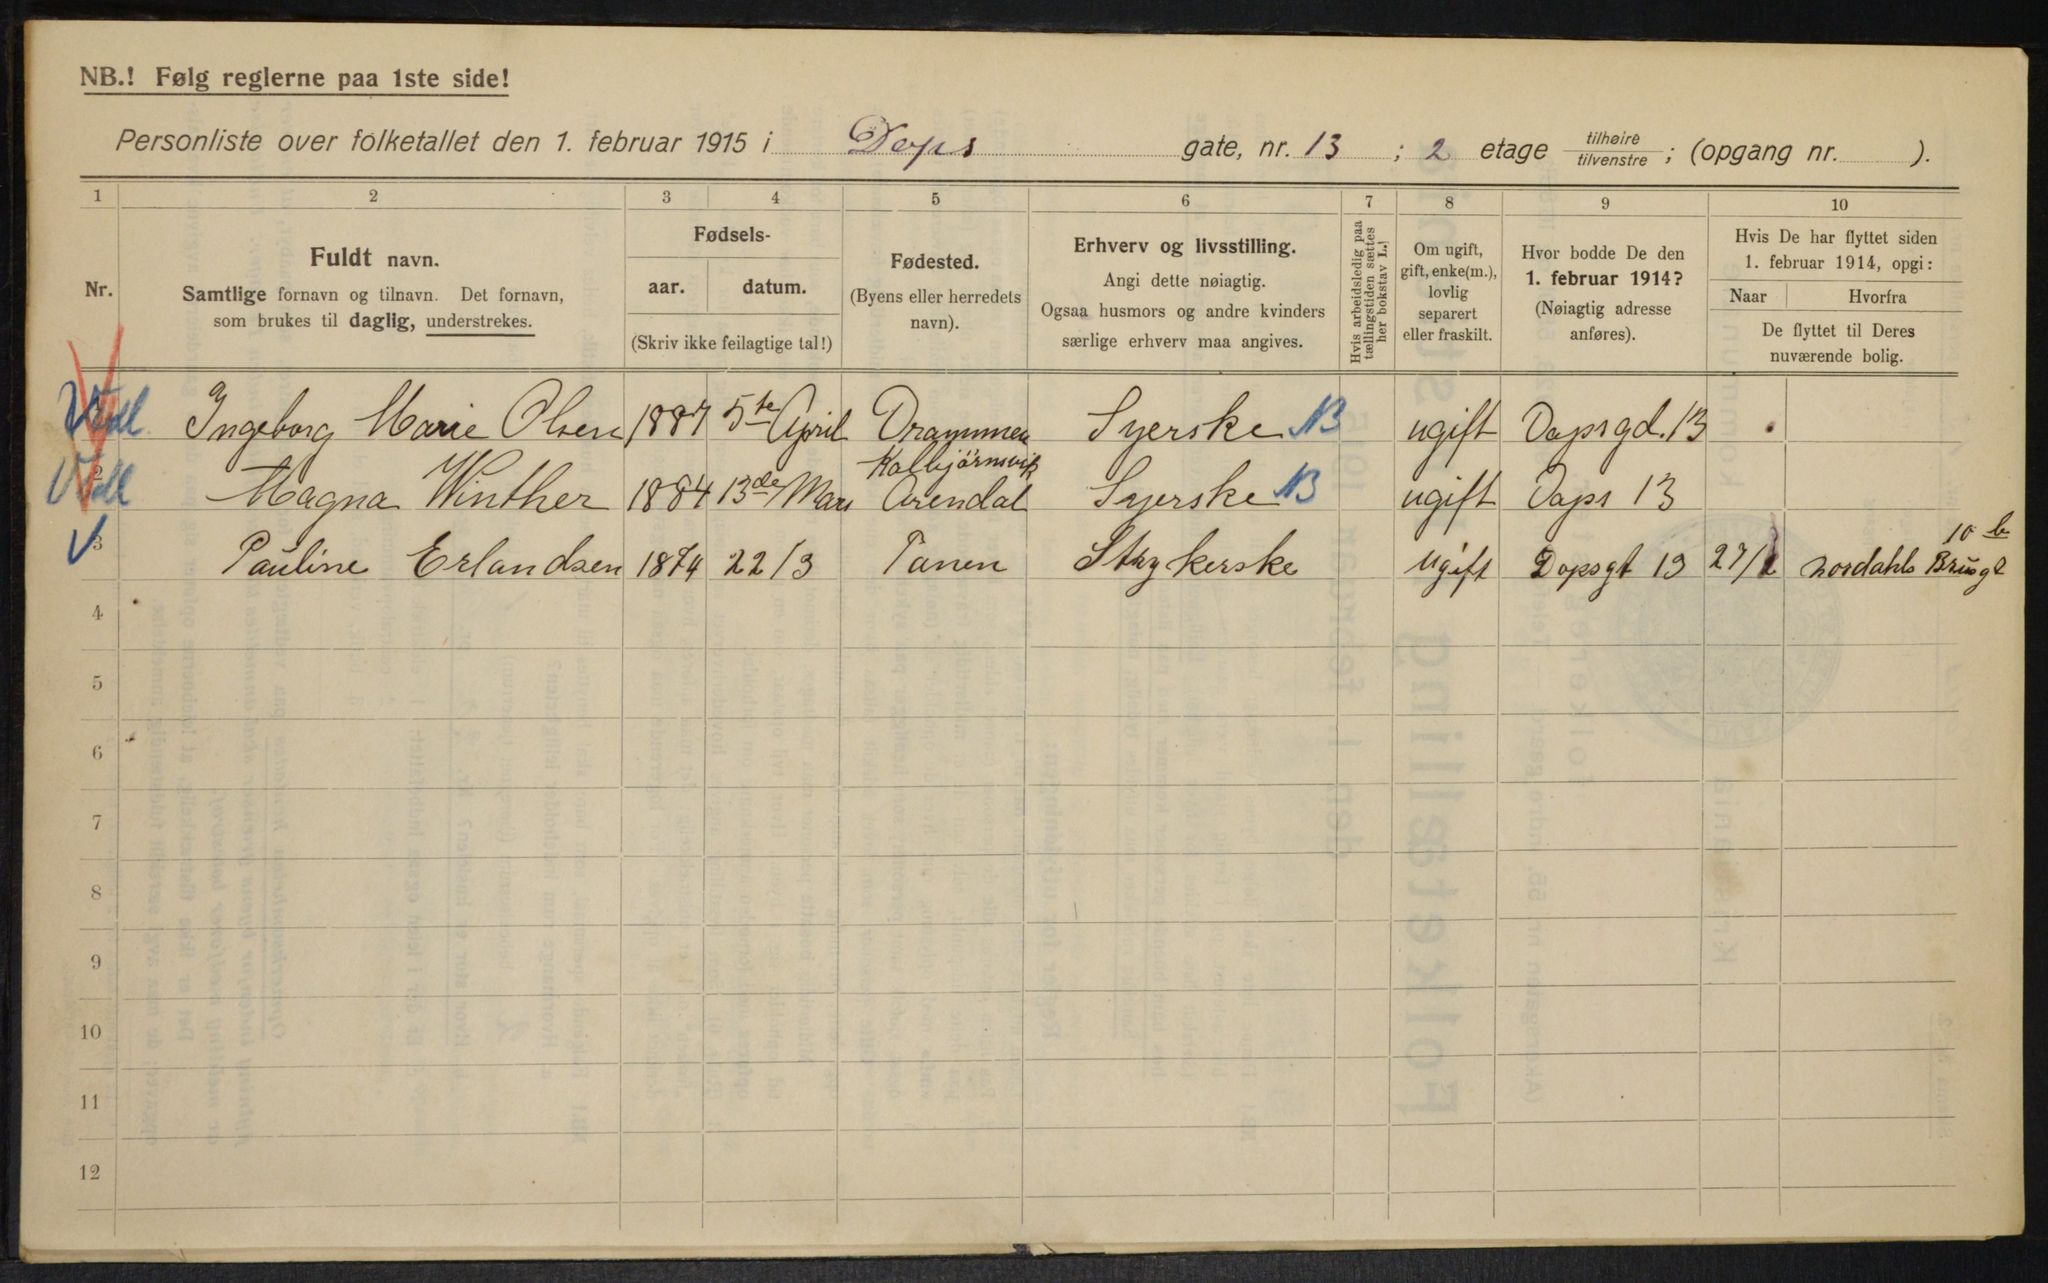 NB.! Følg reglerne paa 1ste side!
Personliste over folketallet den 1. februar 1915 i Dops gate, nr. 13 ; 2 etage tilhøire tilvenstre ; (opgang nr. ).
1 2 3 4 5 6 7 8 9 10
Nr.
Fuldt navn.
Samtlige fornavn og tilnavn. Det fornavn,
som brukes til daglig, understrekes.
Fødsels-
aar. datum.
(Skriv ikke feilagtige tal!)
Fødested.
(Byens eller herredets
navn).
Erhverv og livsstilling.
Angi dette nøiagtig.
Ogsaa husmors og andre kvinders
særlige erhverv maa angives.
Hvis arbeidsledig paa
tællingstiden sættes
her bokstav L.!
Om ugift,
gift, enke(m.),
lovlig
separert
eller fraskilt.
Hvor bodde De den
1. februar 1914?
(Nøiagtig adresse
anføres).
Hvis De har flyttet siden
1. februar 1914, opgi:
Naar Hvorfra
De flyttet til Deres
nuværende bolig.
Ingeborg Marie Olsen 1887 5te April Drammen Syerske B ugift Dopsgd. 13
Kolbjörnsvik
2 Magna Winther 1884 13de Mars Arendal Syerske B ugift Dops 13
10 b
3 Pauline Erlandsen 1874 22/3 Tanen Strykerske ugift Dopsgt 13 27/ Nordahls Brusgt
4
5
6
7
8
9
10
11
12